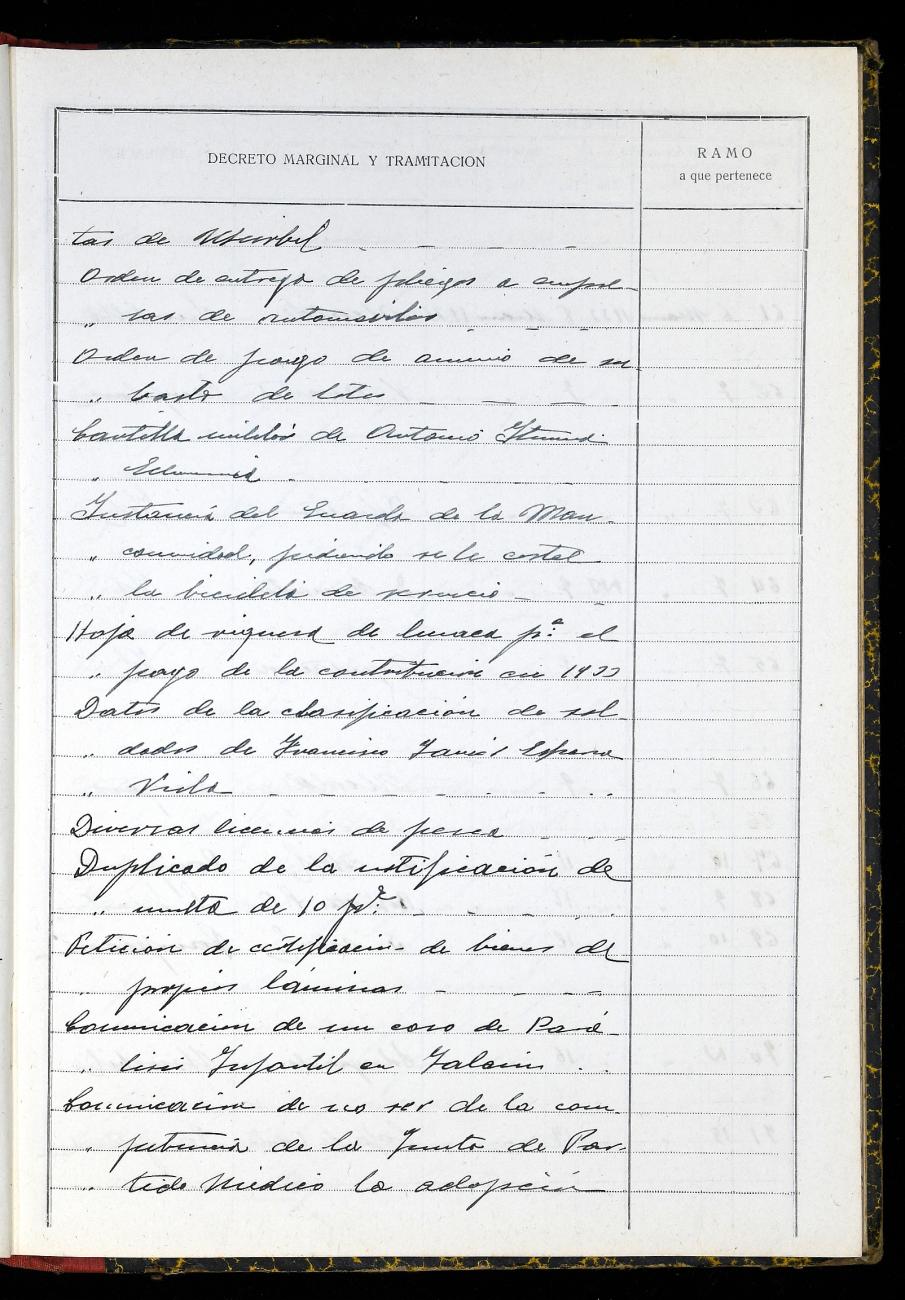 DECRETO MARGINAL Y TRAMITACION
RAMO
a que pertenece
tas de Usurbil
Orden de entrega de pliegos a empre-
" sas de automoviles
Orden de pago de anuncio de su-
" basta de lotes
Cartilla militar de Antonio
"
Instancia del Guarda de la Man-
" comunidad, pidiendo se le costee
" la bicicleta de servicio
Hoja de riqueza de p.ª el
" pago de la contribucion en 1933
Datos de la clasificación de sol-
" dados de Francisco Javier Esparza
" Viela
Diversas licencias de pesca
Duplicado de la notificación de
" multa de 10 pts.
Peticion de certificacion de bienes de
" propios láminas
Comunicacion de un caso de Pará-
" lisis Infantil en
Comunicacion de no ser de la com-
" petencia de la Junta de Par-
" tido Médico la adopción